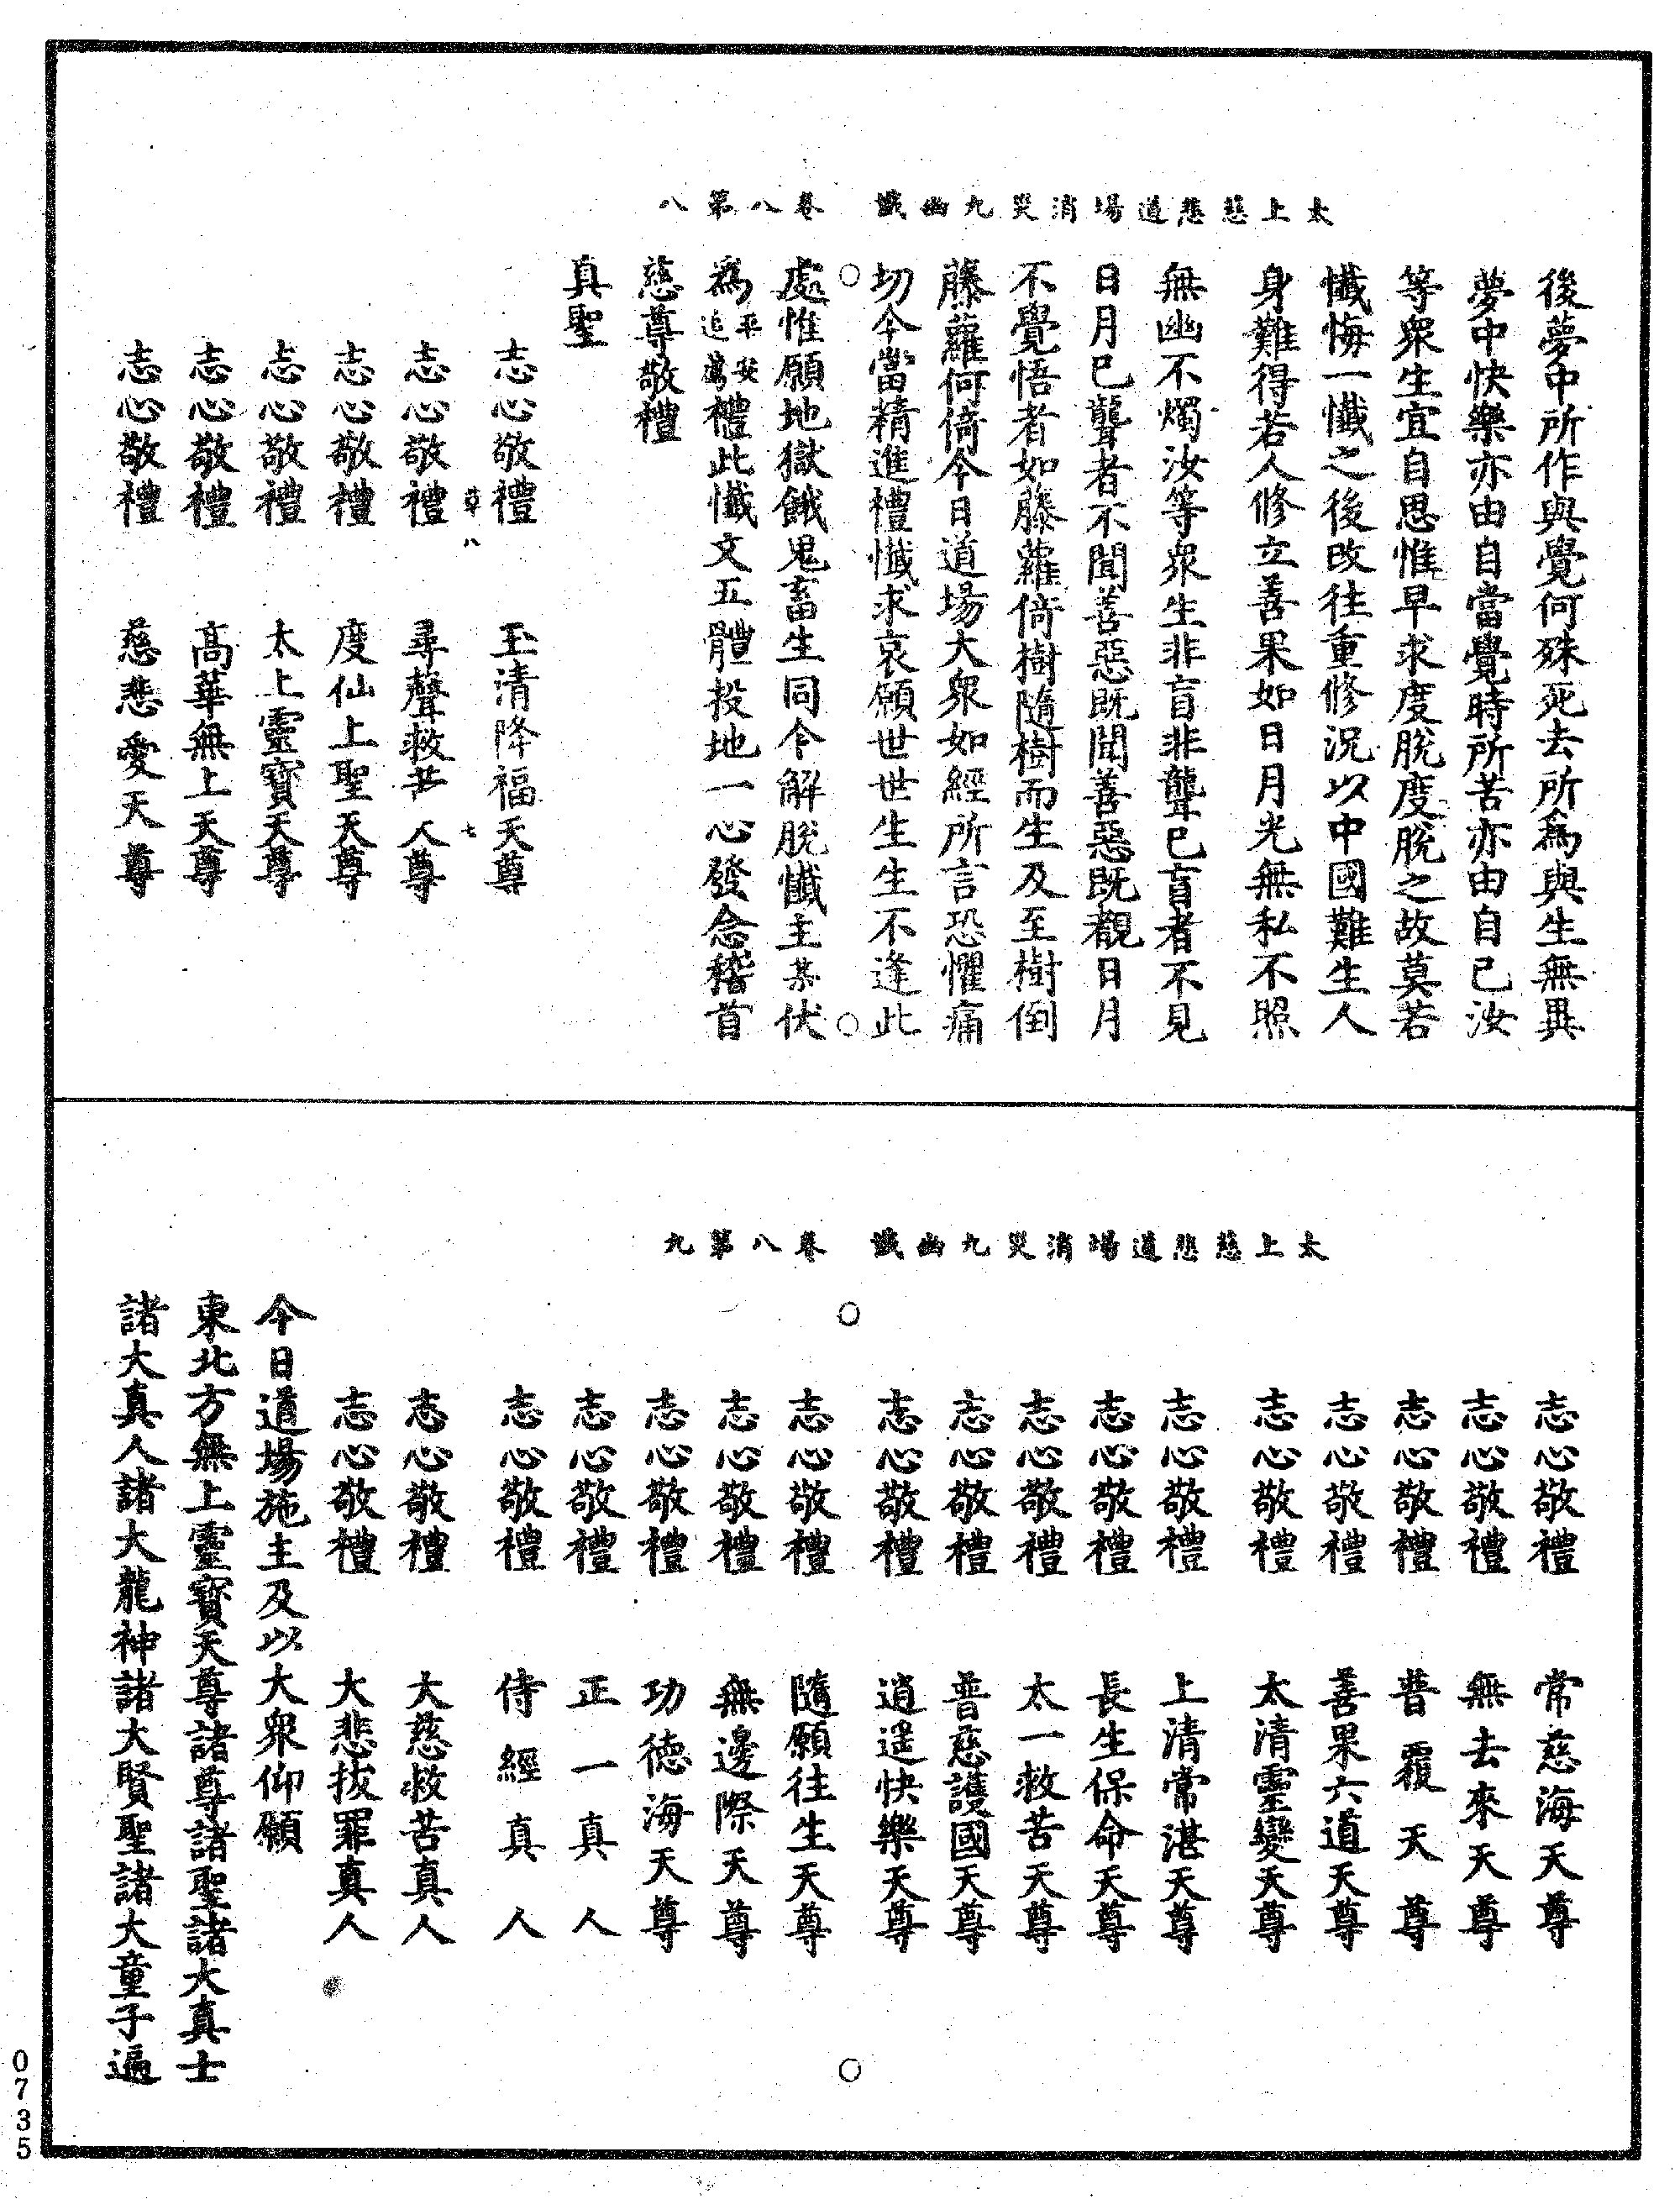 太上慈悲道場消災九幽懺　卷八第八
後夢中所作與覺何殊死去所為與生無異
夢中快樂亦由自當覺時所苦亦由自己汝
等眾生宜自思惟早求度脫度脫之故莫若
懺悔一懺之後改往重修況以中國難生人
身難得若人修立善果如日月光無私不照
無幽不燭汝等眾生非盲非聾已盲者不見
日月已聾者不聞善惡既聞善惡既覩日月
不覺悟者如藤蘿倚樹隨樹而生及至樹倒
藤蘿何倚今日道場大眾如經所言恐懼痛
切今當精進禮懺求哀願世世生生不逢此
處惟願地獄餓鬼畜生同今解脫懺主某伏
為平安追薦禮此懺文五體投地一心發念稽首
慈尊敬禮
真聖
志心敬禮　玉清降福天尊
草八　七
志心敬禮　尋聲救苦天尊
志心敬禮　度仙上聖天尊
志心敬禮　太上靈寶天尊
志心敬禮　高華無上天尊
志心敬禮　慈悲愛天尊
太上慈悲道場消災九幽懺　卷八第九
志心敬禮　常慈海天尊
志心敬禮　無去來天尊
志心敬禮　普覆天尊
志心敬禮　善果六道天尊
志心敬禮　太清靈變天尊
志心敬禮　上清常湛天尊
志心敬禮　長生保命天尊
志心敬禮　太一救苦天尊
志心敬禮　普慈護國天尊
志心敬禮　逍遥快樂天尊
志心敬禮　隨願往生天尊
志心敬禮　無邊際天尊
志心敬禮　功德海天尊
志心敬禮　正一真人
志心敬禮　侍經真人
志心敬禮　大慈救苦真人
志心敬禮　大悲拔罪真人
今日道場施主及以大眾仰願
東北方無上靈寶天尊諸尊諸聖諸大真士
諸大真人諸大龍神諸大賢聖諸大童子遍
0735